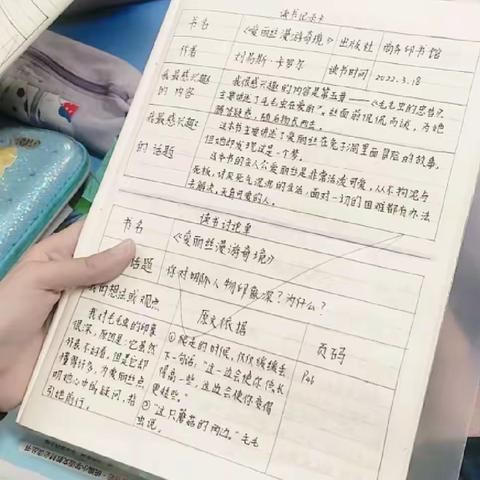 读书记录卡
书名 《爱丽丝漫游奇境》 出版社 商务印书馆
作者 刘易斯·卡罗尔 读书时间 2022.3.18
我最感兴趣的内容
我很感兴趣的内容是第五章——《毛毛虫的忠告》
主要讲述了毛毛虫在爱丽丝面前侃侃而谈,为她
解答疑惑,随后扬长而去。
我最感兴趣的话题
这本书主要讲述了爱丽丝在兔子洞里面冒险的故事,
但她却发现这是一个梦。
这本书的主人公爱丽丝是非常活泼可爱,从不拘泥与
死板,讨厌死气沉沉的生活,面对一切的困难都有办法
去解决,天真可爱的人。
读书讨论单
书名 《爱丽丝漫游奇境》
话题 你对哪个人物印象深?为什么?
我的想法或观点 原文依据 页码
我对毛毛虫的印象
很深,原因是:它虽然
外表不好看,但是它却
懂得许多,为爱丽丝点
明她心中的疑问,指
引她前行。
①爬走的时候,仅仅缓缓丢
下一句话:“这一边会使你长
得高一些,这边会使你变得
更矮些。”
②“这只蘑菇的两边。”毛毛
虫说。
P66